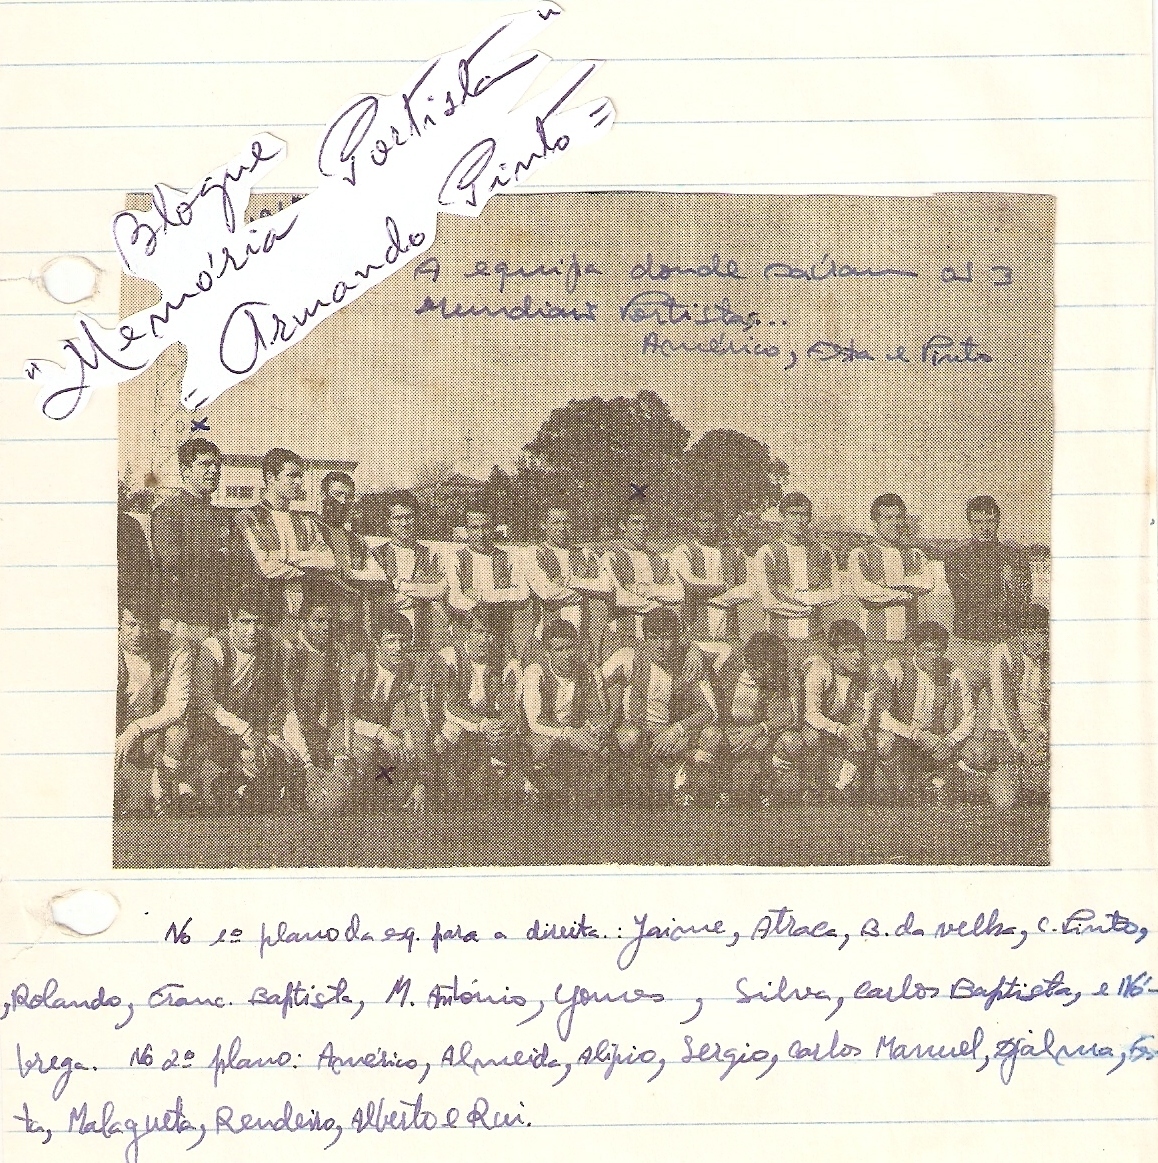 Blogue
"Memória Portista"
= Armando Pinto =
A equipa donde saíram os 3
Mundiais Portistas...
Américo, Festa e Pinto
No 1º plano da esq. para a direita.: Jaime, Atraca, B. da velha, C. Pinto,
, Rolando, Franc. Baptista, M. António, Gomes, Silva, Carlos Baptista, e Nó-
brega. No 2º plano: Américo, Almeida, Alípio, Sergio, Carlos Manuel, Djalma, Fes-
ta, Malagueta, Rendeiro, Alberto e Rui.